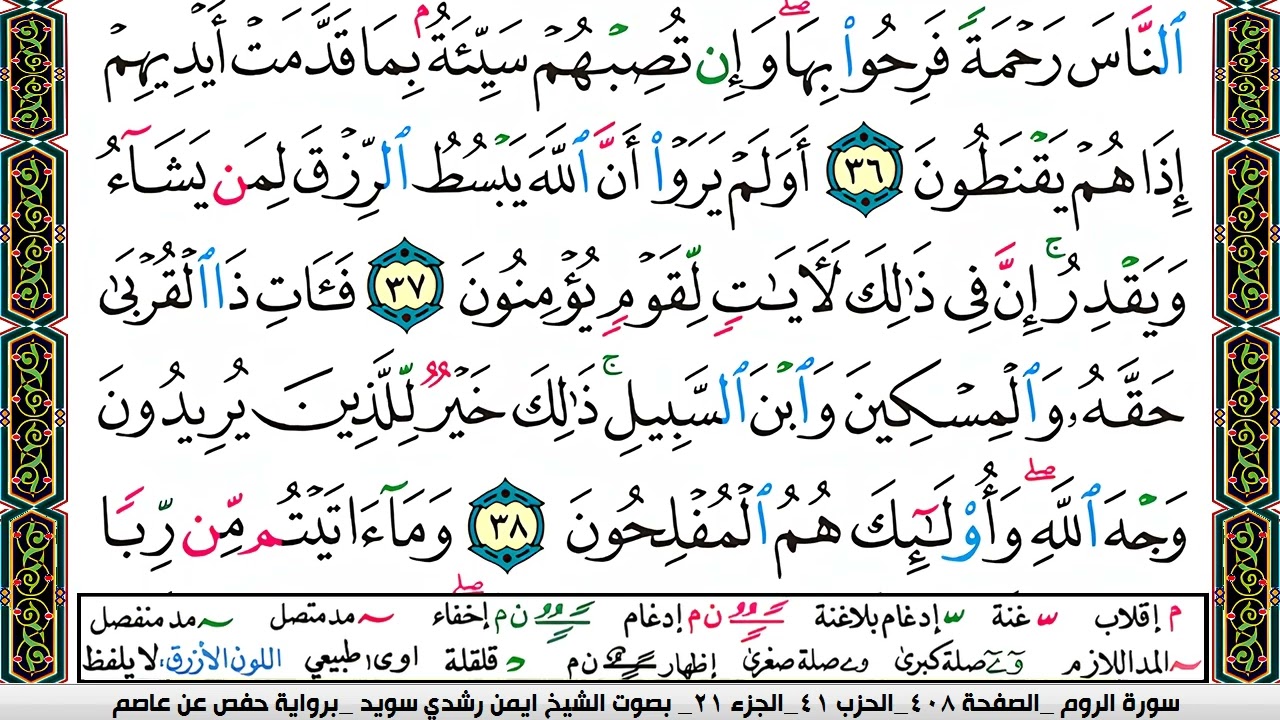 ٱلنَّاسَ رَحْمَةً فَرِحُوا۟ بِهَا ۖ وَإِن تُصِبْهُمْ سَيِّئَةٌۢ بِمَا قَدَّمَتْ أَيْدِيهِمْ
إِذَا هُمْ يَقْنَطُونَ ٣٦ أَوَلَمْ يَرَوْا۟ أَنَّ ٱللَّهَ يَبْسُطُ ٱلرِّزْقَ لِمَن يَشَآءُ
وَيَقْدِرُ ۚ إِنَّ فِى ذَٰلِكَ لَـَٔايَـٰتٍ لِّقَوْمٍ يُؤْمِنُونَ ٣٧ فَـَٔاتِ ذَا ٱلْقُرْبَىٰ
حَقَّهُۥ وَٱلْمِسْكِينَ وَٱبْنَ ٱلسَّبِيلِ ۚ ذَٰلِكَ خَيْرٌ لِّلَّذِينَ يُرِيدُونَ
وَجْهَ ٱللَّهِ ۖ وَأُو۟لَـٰٓئِكَ هُمُ ٱلْمُفْلِحُونَ ٣٨ وَمَآ ءَاتَيْتُم مِّن رِّبًا
م إقلاب غنة إدغام بلاغنة ن م إدغام ن م إخفاء مد متصل مد منفصل
المد اللازم صلة كبرى صلة صغرى إظهار ن م قلقلة اوى طبيعي اللون الأزرق، لا يلفظ
سورة الروم _الصفحة ٤٠٨_الحزب ٤١_الجزء ٢١_ بصوت الشيخ ايمن رشدي سويد _برواية حفص عن عاصم